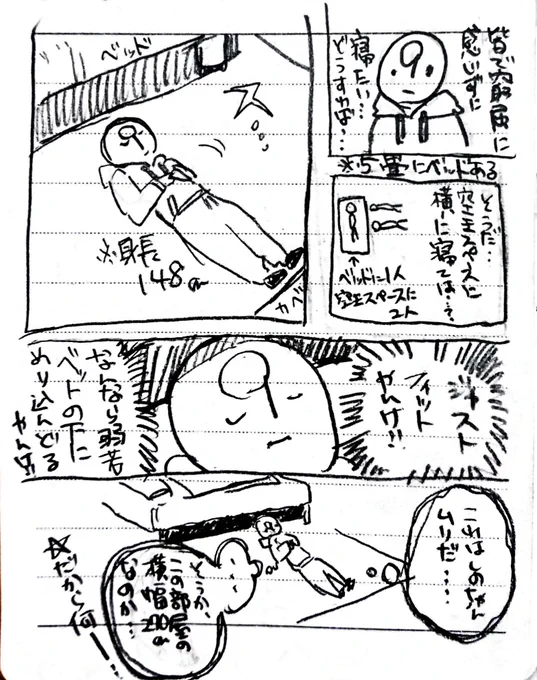 皆で窮屈に
感じずに
寝たい…
どうすれば…
※5畳にベッドある
そうだ…
空きスペースに
横に寝ては…?
ベッドに1人
空きスペースに
2人
ベッド
※身長
148cm
カベ
ジャスト
フィット
やんけ!!
なんなら弱若
ベットの下に
めり込んどる
やんけ!
これはしのちゃん
ムリだ……
そうか、
この部屋の
横幅200cm
なのか…
☆だから何ー!